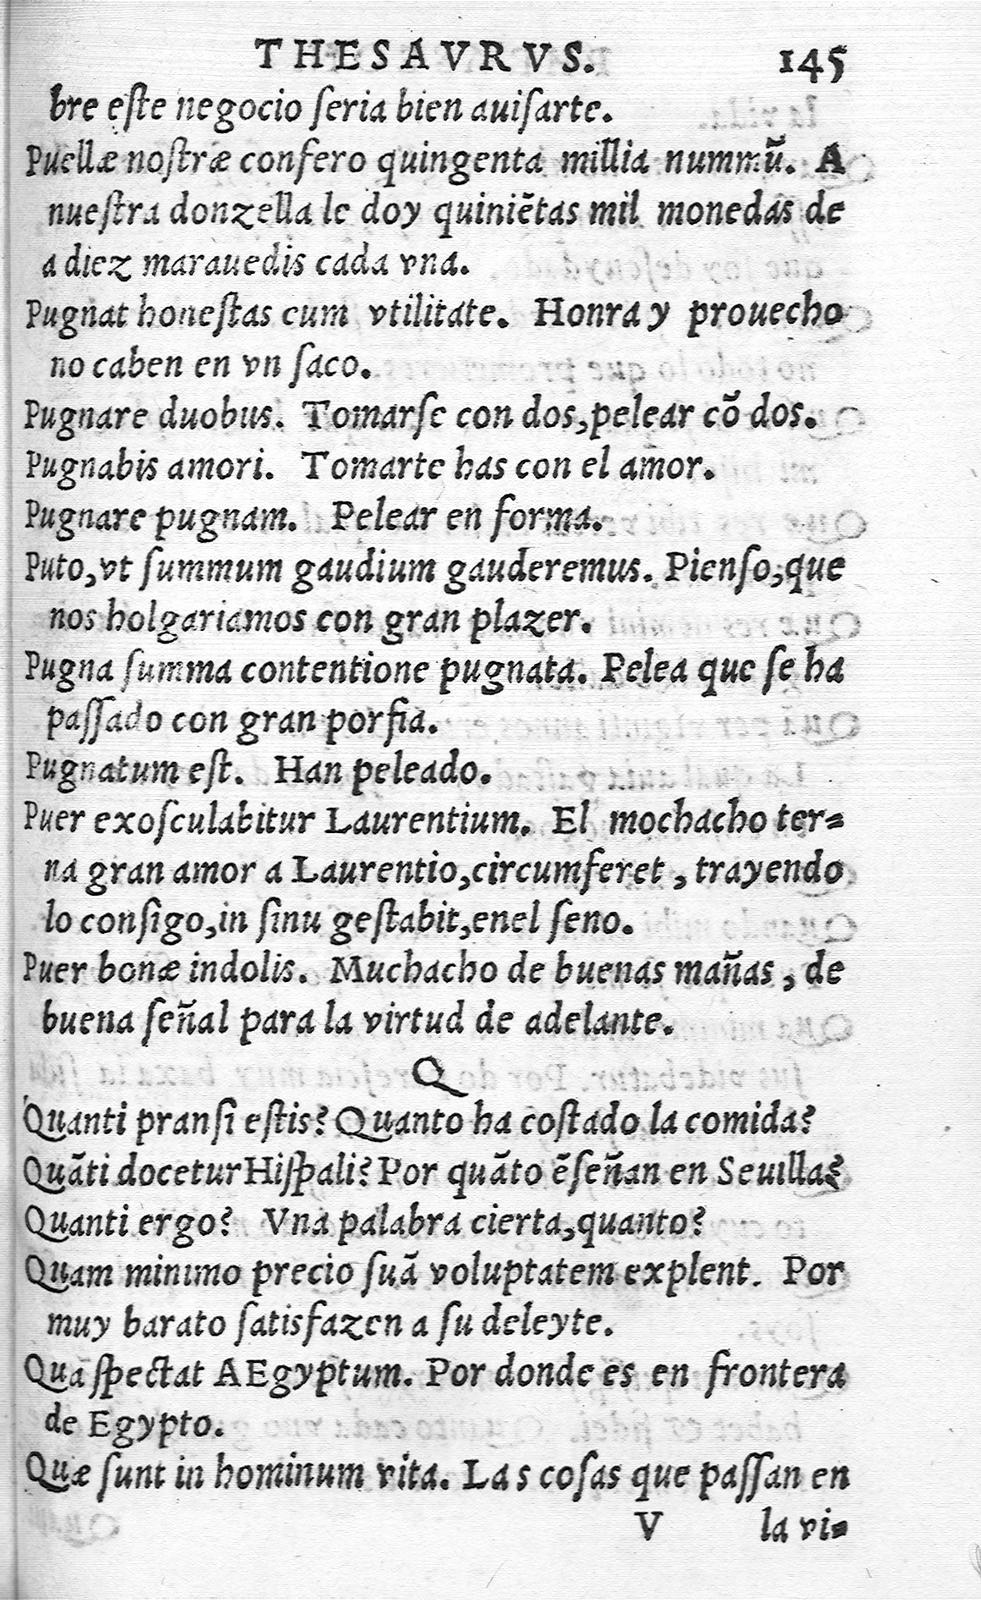 THESAVRVS. 145
bre este negocio seria bien auisarte.
Puellæ nostræ confero quingenta millia nummũ. A
nuestra donzella le doy quiniẽtas mil monedas de
a diez marauedis cada vna.
Pugnat honestas cum vtilitate. Honra y prouecho
no caben en vn saco.
Pugnare duobus. Tomarse con dos, pelear cõ dos.
Pugnabis amori. Tomarte has con el amor.
Pugnare pugnam. Pelear en forma.
Puto, vt summum gaudium gauderemus. Pienso, que
nos holgariamos con gran plazer.
Pugna summa contentione pugnata. Pelea que se ha
passado con gran porfia.
Pugnatum est. Han peleado.
Puer exosculabitur Laurentium. El mochacho ter=
na gran amor a Laurentio, circumferet, trayendo
lo consigo, in sinu gestabit, enel seno.
Puer bonæ indolis. Muchacho de buenas mañas, de
buena señal para la virtud de adelante.
Q
Quanti pransi estis? Quanto ha costado la comida?
Quãti docetur Hispali? Por quãto ẽseñan en Seuilla?
Quanti ergo? Vna palabra cierta, quanto?
Quam minimo precio suã voluptatem explent. Por
muy barato satisfazen a su deleyte.
Qua spectat AEgyptum. Por donde es en frontera
de Egypto.
Quæ sunt in hominum vita. Las cosas que passan en
V la vi=